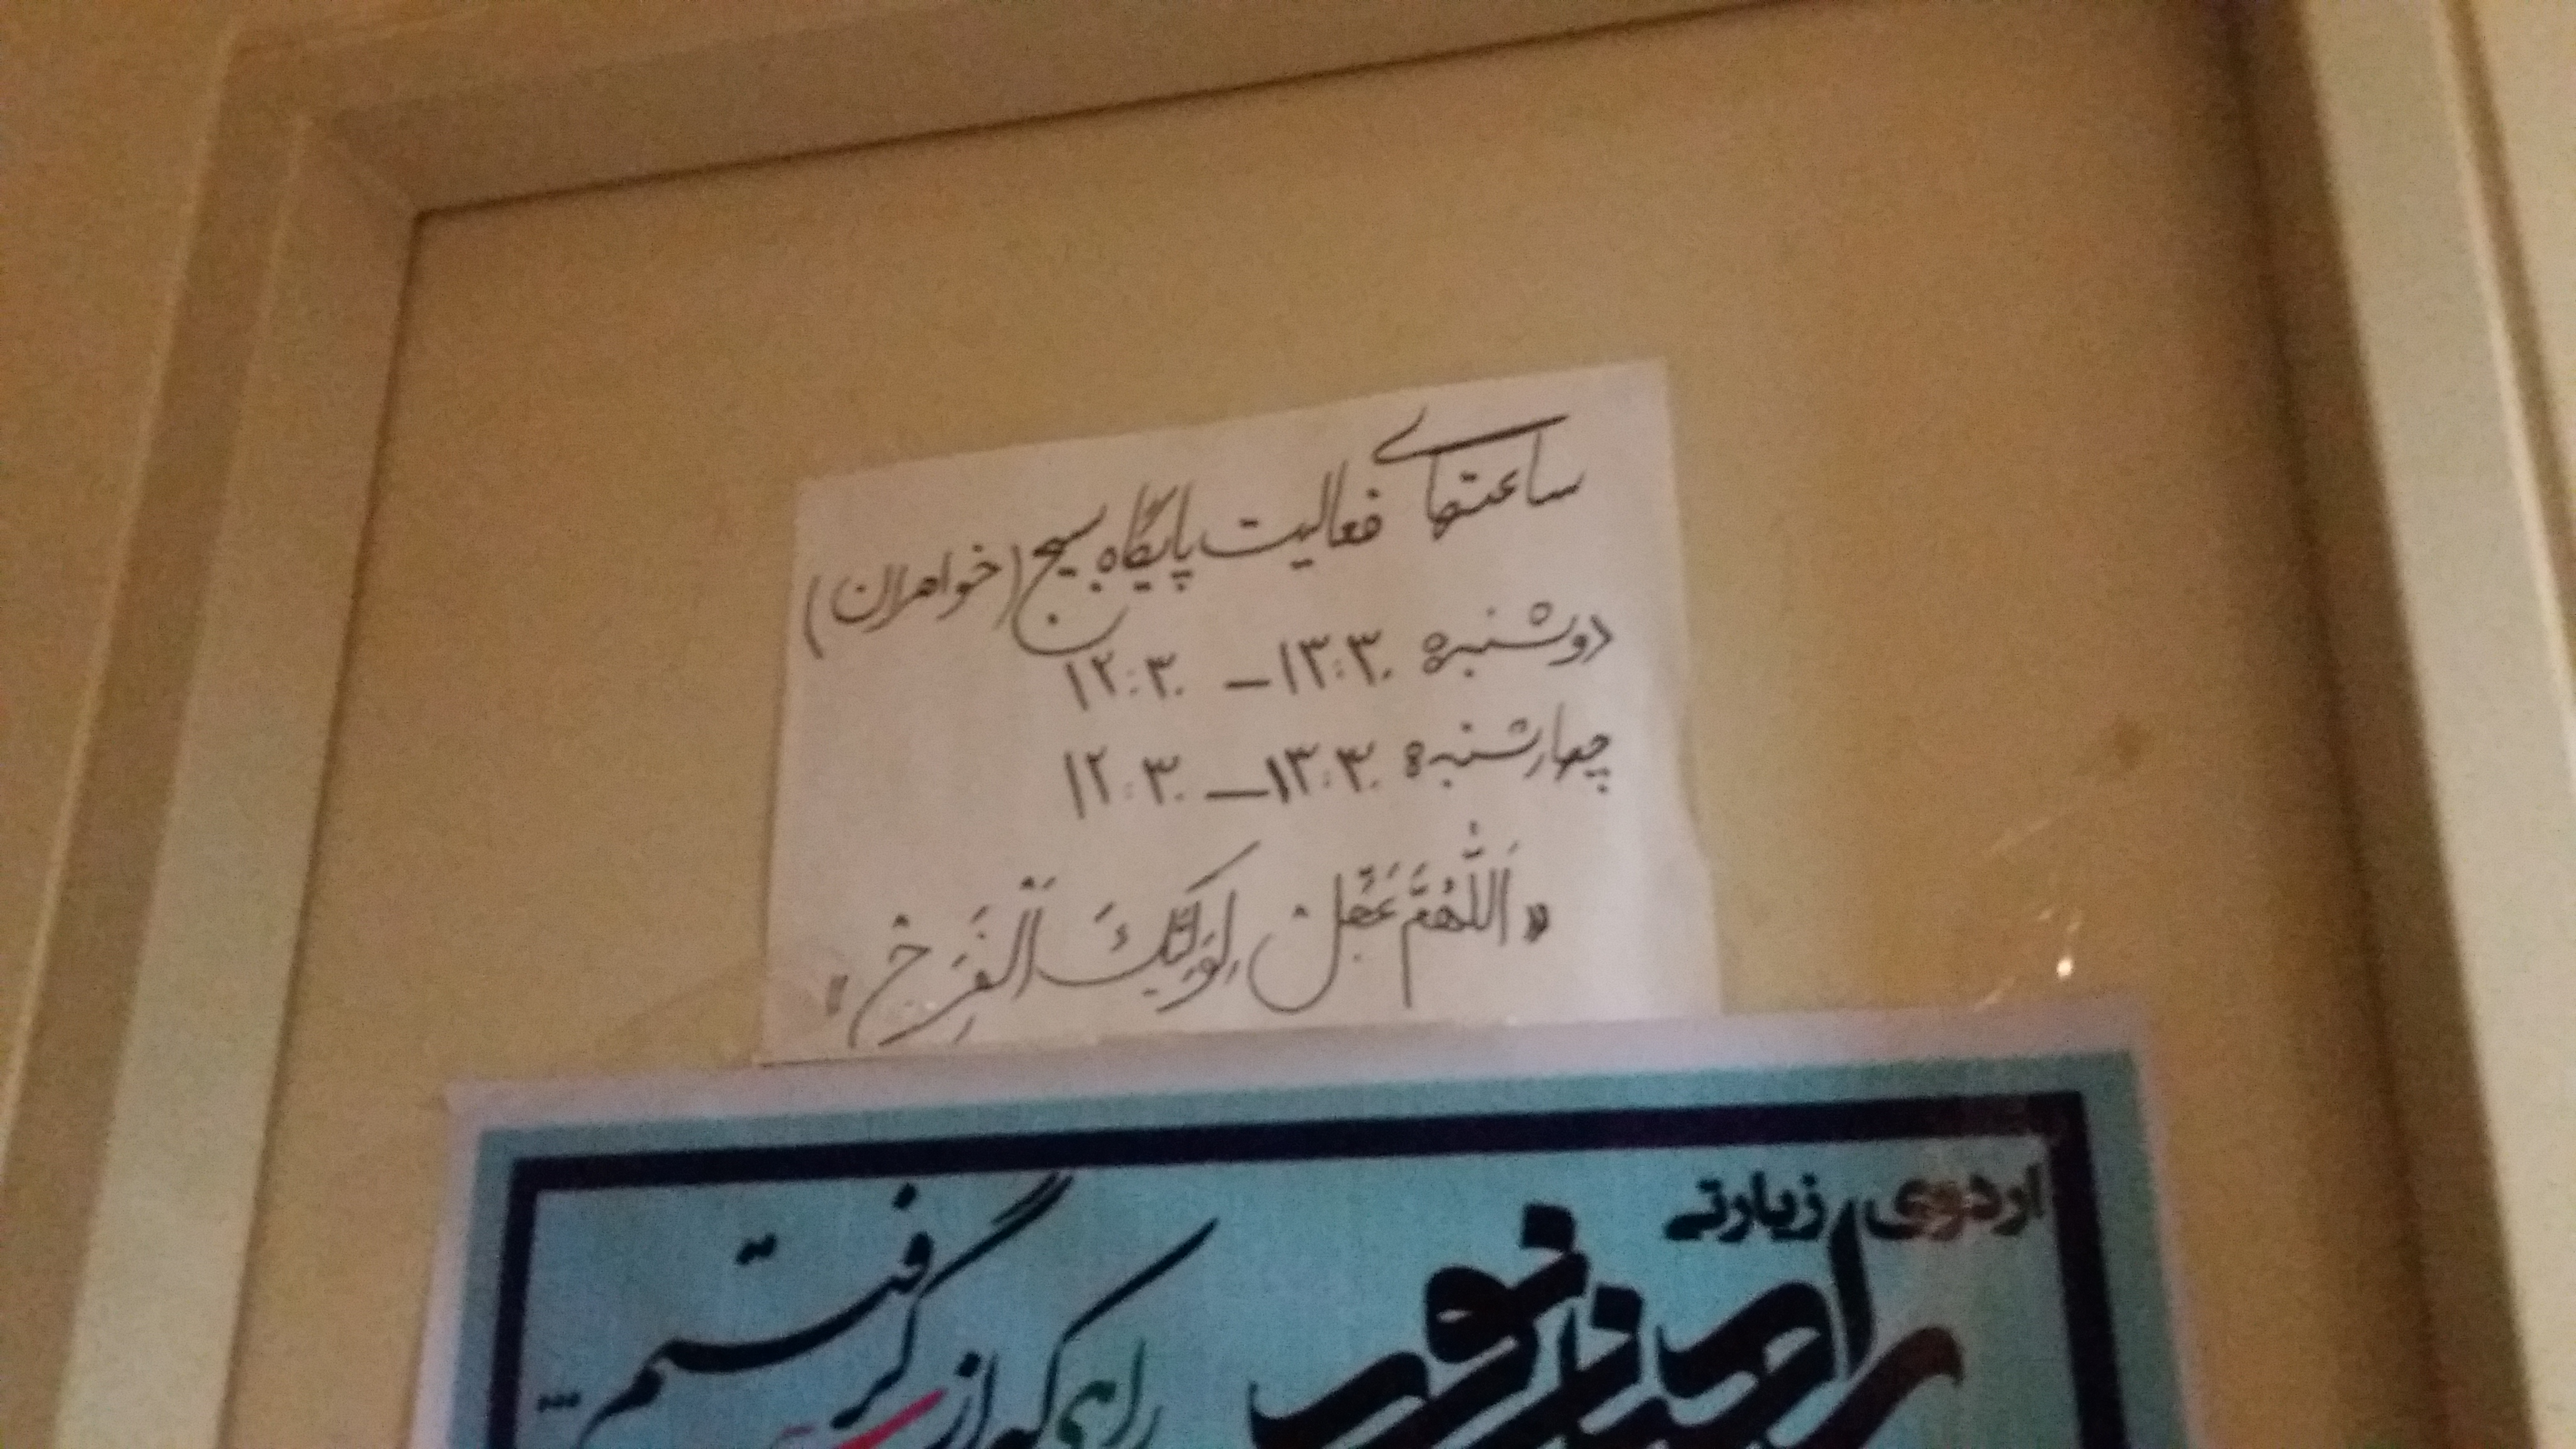 ساعتهای فعالیت پایگاه بسیج (خواهران)
دوشنبه: ۱۳:۳۰ – ۱۲:۳۰
چهارشنبه: ۱۳:۳۰ – ۱۲:۳۰
«اَللّٰهُمَّ عَجِّلْ لِوَلیِّکَ اَلْفَرَجْ»
اردوی زیارتی
راهیان نور
راهی که از سر گرفتیم...